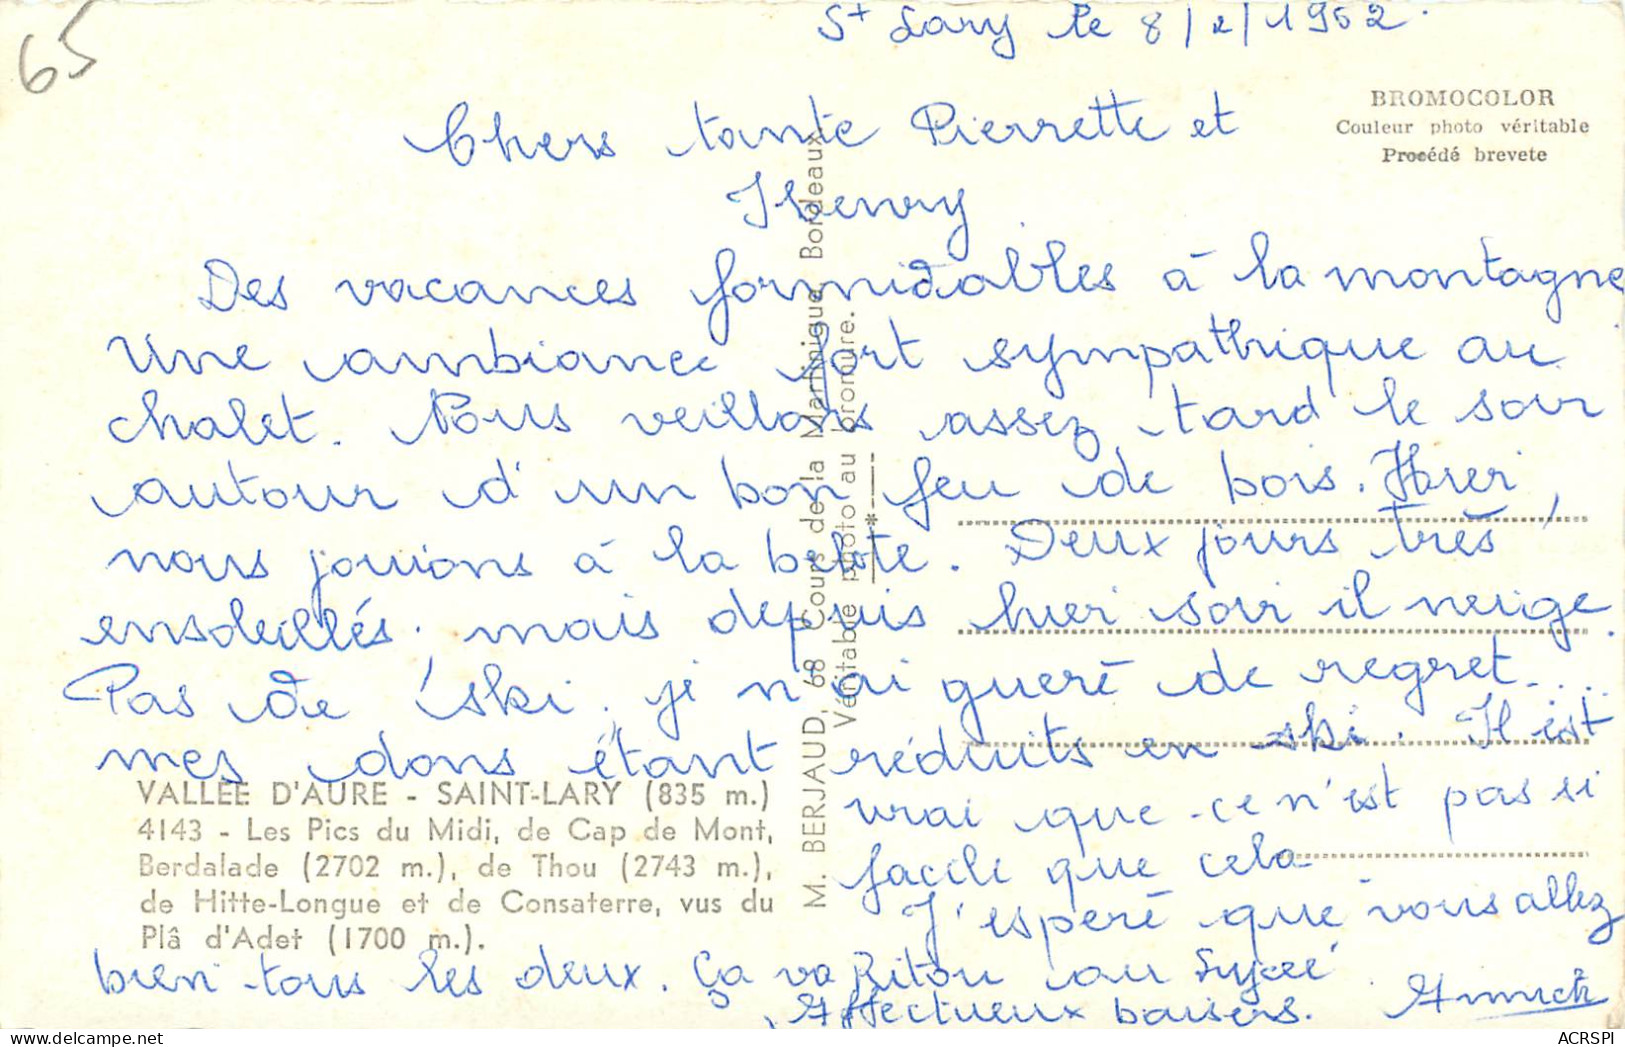 65
St Lary le 8/2/1962.
BROMOCOLOR
Couleur photo véritable
Procédé brevete
Chers tante Pierrette et
Henry
Des vacances formidables à la montagne
Une ambiance fort sympathique au
chalet. Nous veillons assez tard le soir
autour d'un bon feu de bois. Hier,
nous jouions à la belote. Deux jours très
ensoleillés, mais depuis hier soir il neige.
Pas de ski, je n'ai guère de regret...
mes dons étant réduits en ski. Il est
vrai que ce n'est pas si
facile que cela
J'espère que vous allez
bien tous les deux. Ça va Ritou au Lycée
Affectueux baisers. Annick
VALLÉE D'AURE - SAINT-LARY (835 m.)
4143 - Les Pics du Midi, de Cap de Mont,
Berdalade (2702 m.), de Thou (2743 m.),
de Hitte-Longue et de Consaterre, vus du
Plâ d'Adet (1700 m.).
M. BERJAUD, 68, Cours de la Martinique, Bordeaux
Véritable photo au bromure.
ACRSPI